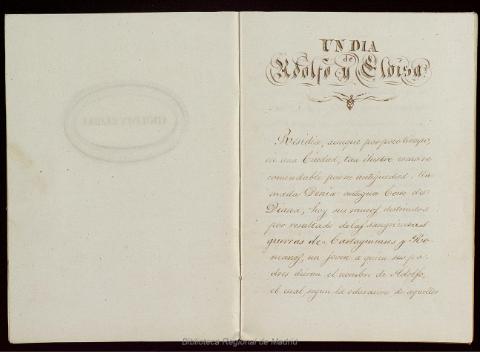 UN DIA
de
Adolfo y Eloisa
Residia, aunque por poco tiempo,
en una Ciudad, tan ilustre como re
comendable por su antigüedad, lla
mada Denia antiguo
Diana, hoy sus destruidos
por resultado de las sangrientas
guerras de Cartagineses y Ro
manos, un joven a quien sus pa
dres dieron el nombre de Adolfo,
el cual, segun la educacion de aquellos
Biblioteca Regional de Madrid